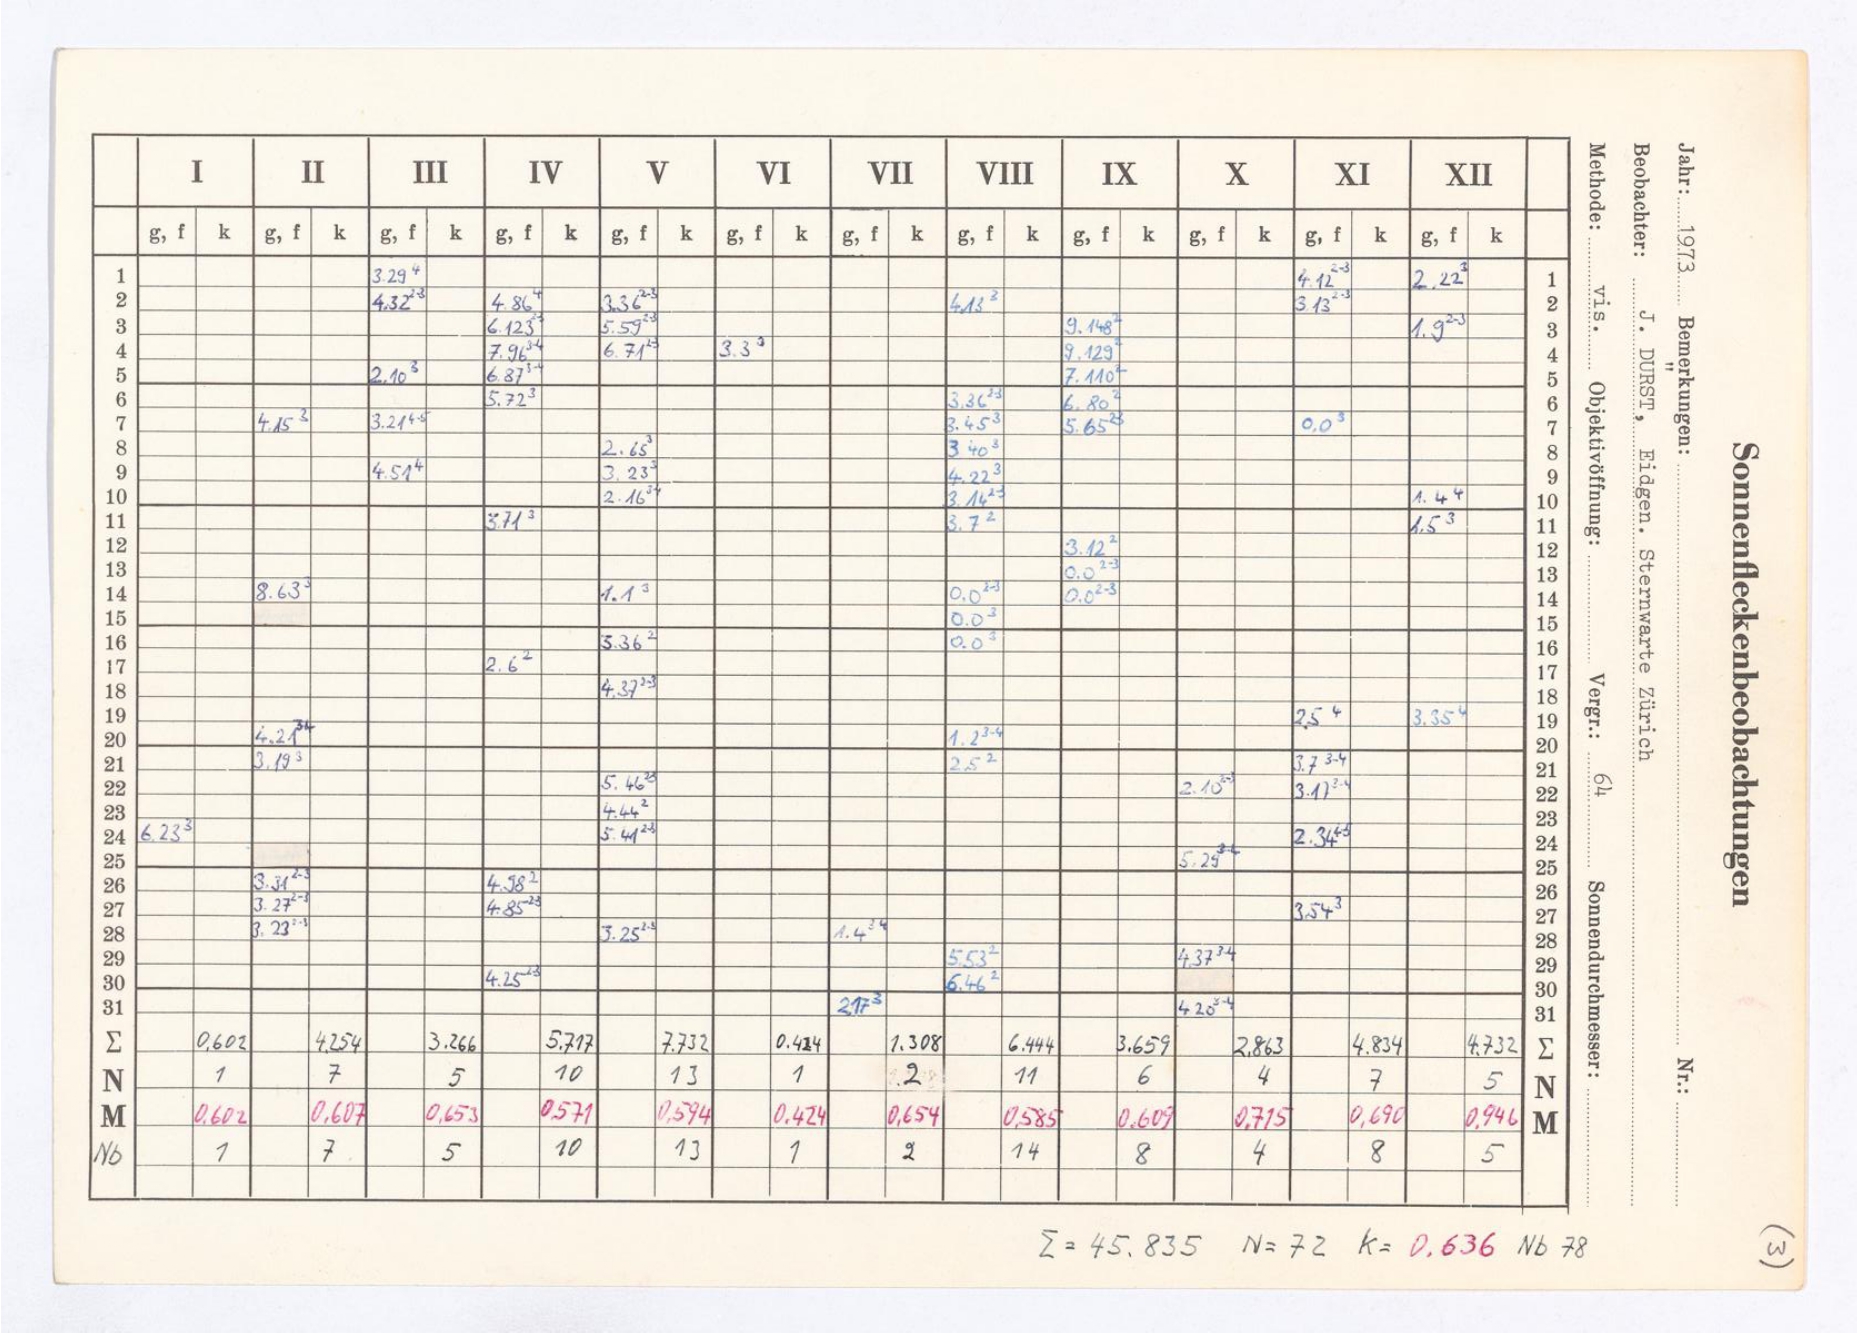 Sonnenfleckenbeobachtungen
Jahr: 1973 Bemerkungen: Nr.:
Beobachter: J. DÜRST, Eidgen. Sternwarte Zürich
Methode: vis. Objektivöffnung: Vergr.: 64 Sonnendurchmesser:
I II III IV V VI VII VIII IX X XI XII
g, f k g, f k g, f k g, f k g, f k g, f k g, f k g, f k g, f k g, f k g, f k g, f k
1 3.29⁴ 4.12²⁻³ 2.22³ 1
2 4.32²⁻³ 4.86⁴ 3.36²⁻³ 4.13³ 3.13²⁻³ 2
3 6.123²⁻³ 5.59²⁻³ 9.148² 1.9²⁻³ 3
4 7.96³⁻⁴ 6.71²⁻³ 3.3³ 9.129² 4
5 2.10³ 6.87³⁻⁴ 7.110² 5
6 5.72³ 3.36²⁻³ 6.80² 6
7 4.15³ 3.21⁴⁻⁵ 3.45³ 5.65²⁻³ 0.0³ 7
8 2.65³ 3.40³ 8
9 4.51⁴ 3.23³ 4.22³ 9
10 2.16³⁻⁴ 3.14²⁻³ 1.4⁴ 10
11 3.71³ 3.7² 1.5³ 11
12 3.12² 12
13 0.0²⁻³ 13
14 8.63³ 1.1³ 0.0²⁻³ 0.0²⁻³ 14
15 0.0³ 15
16 3.36² 0.0³ 16
17 2.6² 17
18 4.37²⁻³ 18
19 2.5⁴ 3.35⁴ 19
20 4.21³⁻⁴ 1.2³⁻⁴ 20
21 3.19³ 2.5² 3.7³⁻⁴ 21
22 5.46²⁻³ 2.10²⁻³ 3.17³⁻⁴ 22
23 4.44² 23
24 6.23³ 5.41²⁻³ 2.34⁴⁻⁵ 24
25 5.29³⁻⁴ 25
26 3.31²⁻³ 4.98² 26
27 3.27²⁻³ 4.85²⁻³ 3.54³ 27
28 3.23²⁻³ 3.25²⁻³ 1.4³⁻⁴ 28
29 5.53² 4.37³⁻⁴ 29
30 4.25²⁻³ 6.46² 30
31 2.17³ 4.20³⁻⁴ 31
Σ 0,602 4.254 3.266 5.717 7.732 0.424 1.308 6.444 3.659 2.863 4.834 4.732 Σ
N 1 7 5 10 13 1 2 11 6 4 7 5 N
M 0,602 0,607 0,653 0,571 0,594 0,424 0,654 0,585 0,609 0,715 0,690 0,946 M
Nb 1 7 5 10 13 1 2 14 8 4 8 5
Σ = 45.835 N = 72 k = 0.636 Nb 78
(3)